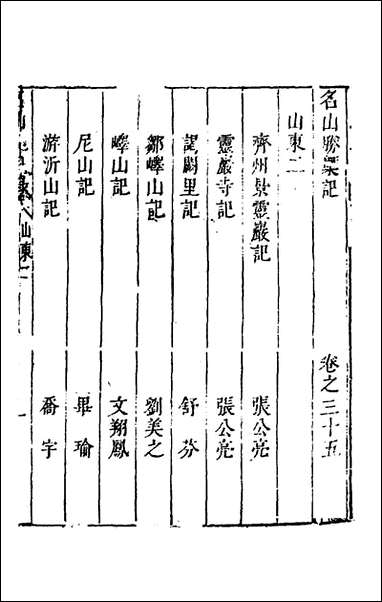 名山勝槩記 卷之三十五
山東二
齊州景靈巖記 張公亮
靈巖寺記 張公亮
謁闕里記 舒芬
鄒嶧山記 劉美之
嶧山記 文翔鳳
尼山記 畢瑜
游沂山記 喬宇
山東二